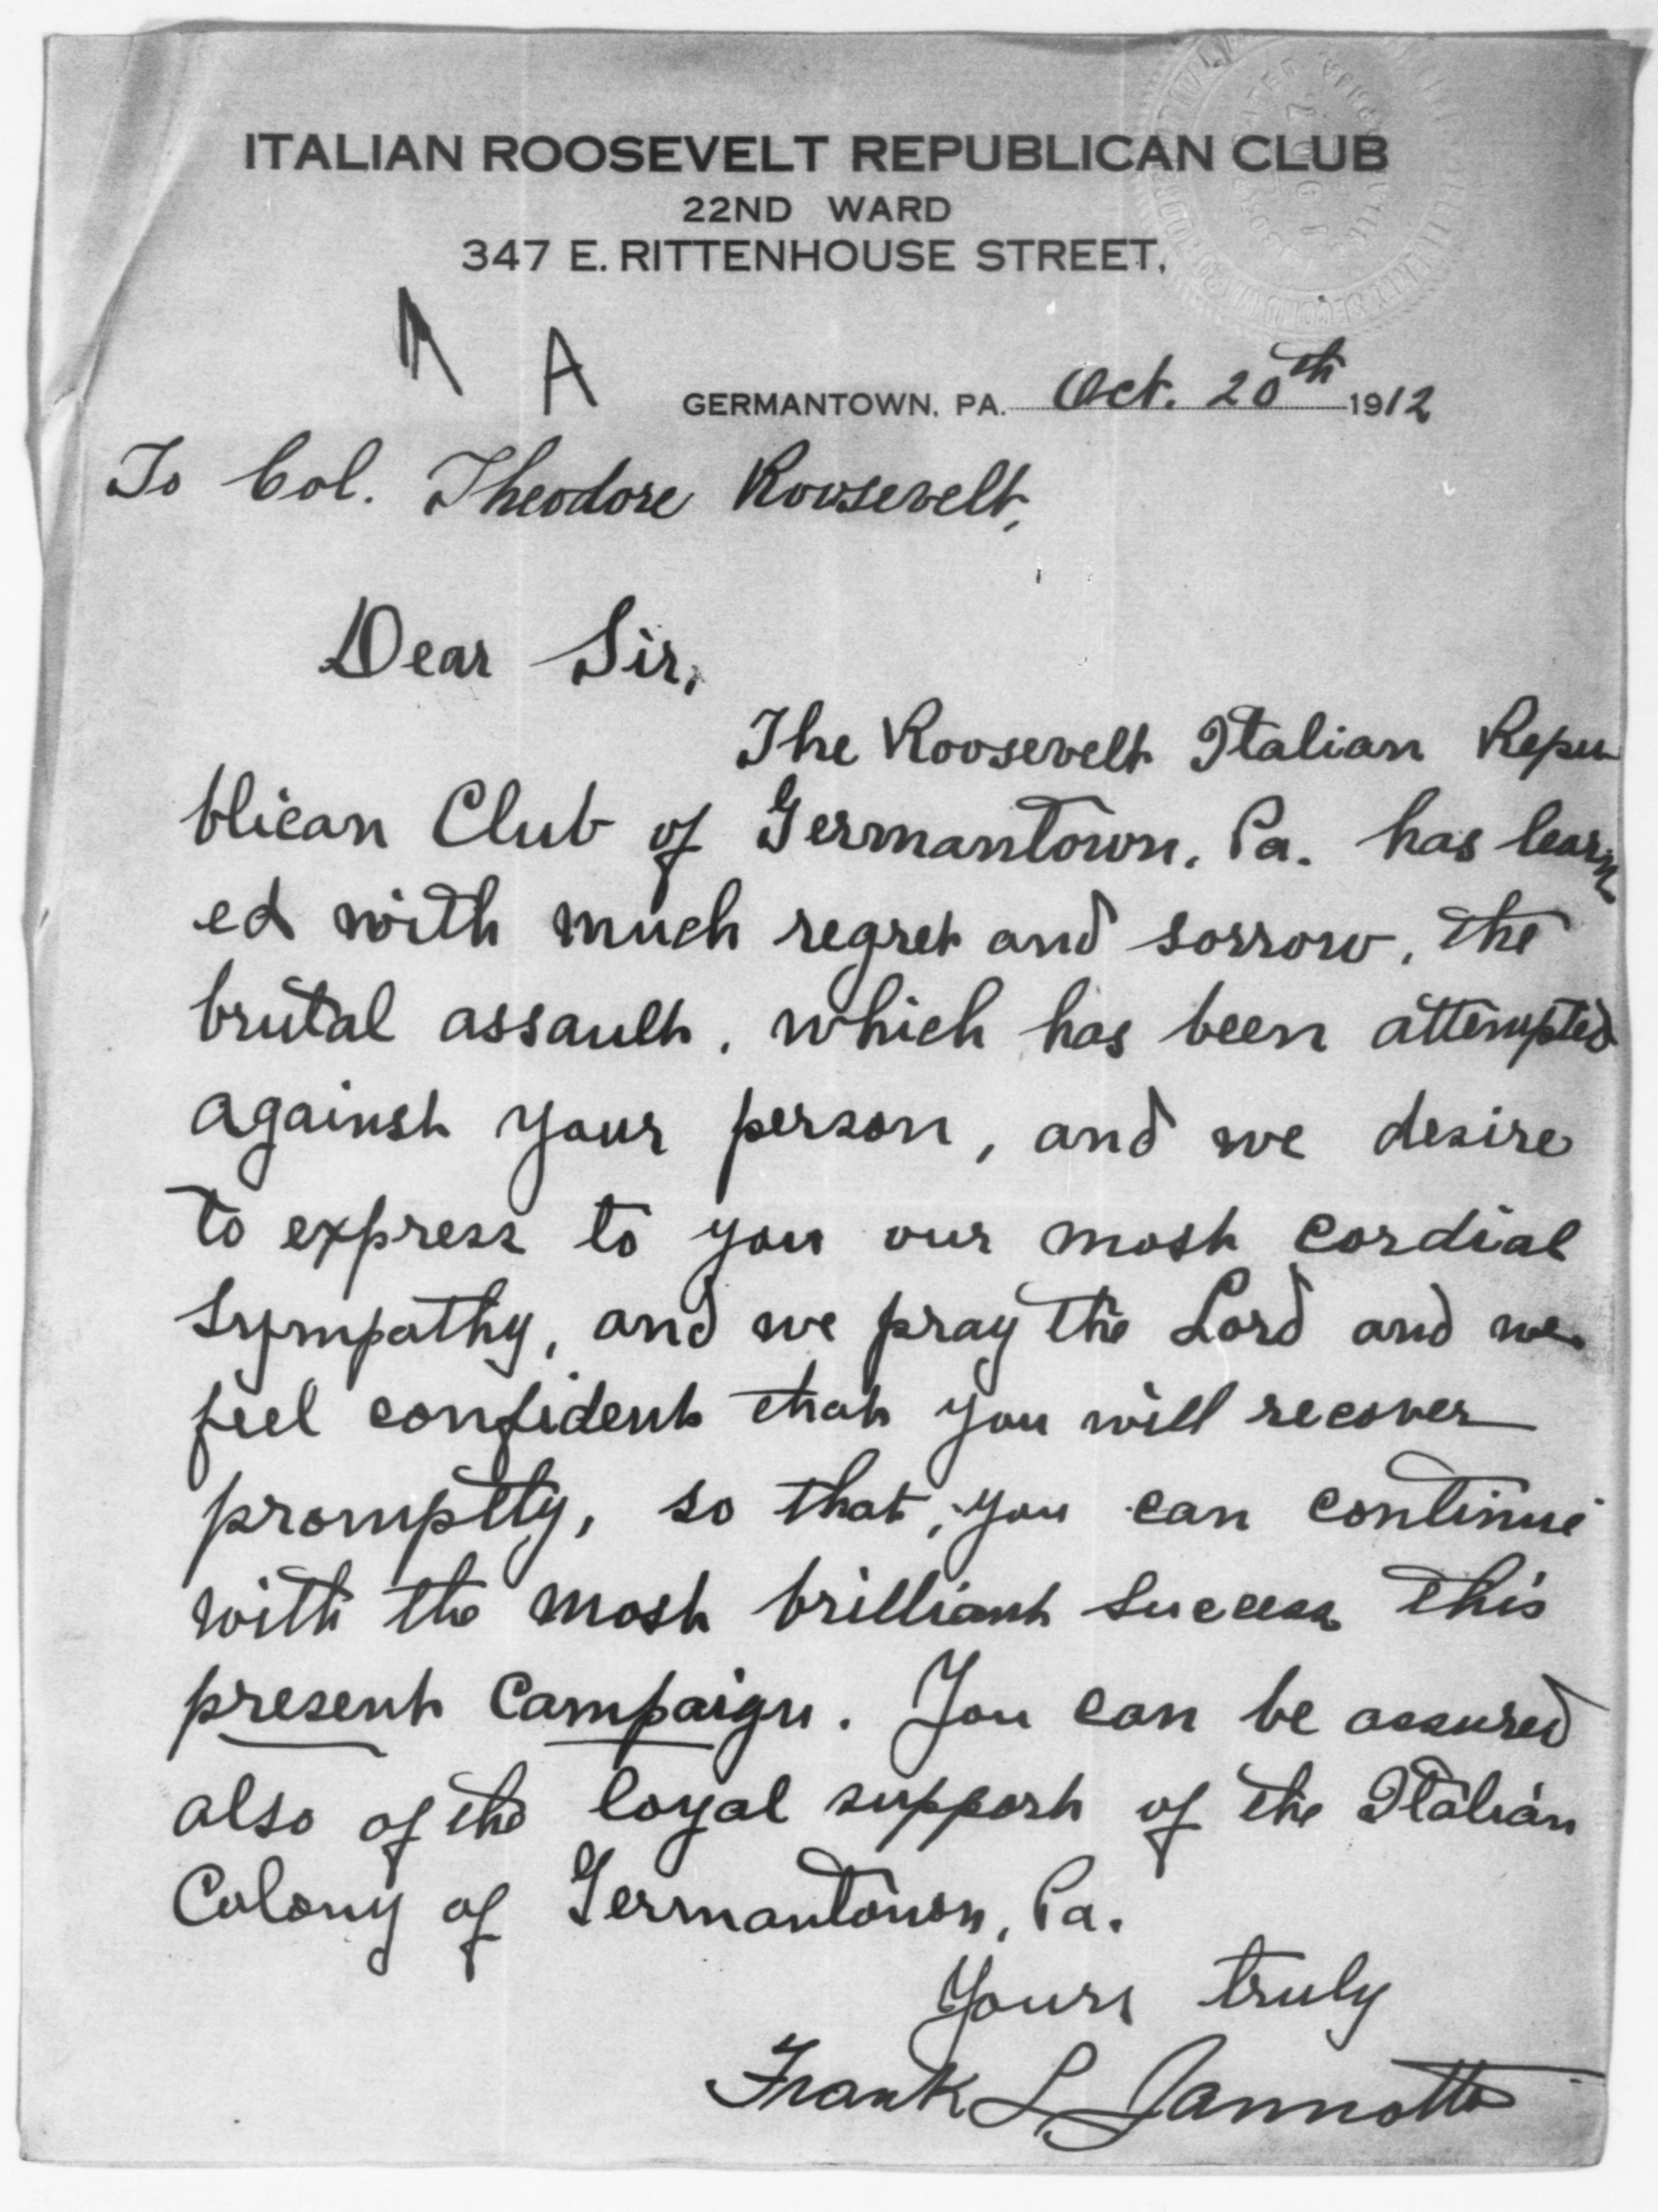 ITALIAN ROOSEVELT REPUBLICAN CLUB
22ND WARD
347 E. RITTENHOUSE STREET,
A
GERMANTOWN, PA. Oct. 20th 1912
To Col. Theodore Roosevelt,
Dear Sir,
The Roosevelt Italian Repu
blican Club of Germantown, Pa. has learn
ed with much regret and sorrow, the
brutal assault, which has been attempted
against your person, and we desire
to express to you our most cordial
sympathy, and we pray the Lord and we
feel confident that you will recover
promptly, so that, you can continue
with the most brilliant success this
present campaign. You can be assured
also of the loyal support of the Italian
Colony of Germantown, Pa.
Yours truly
Frank L. Jannotta